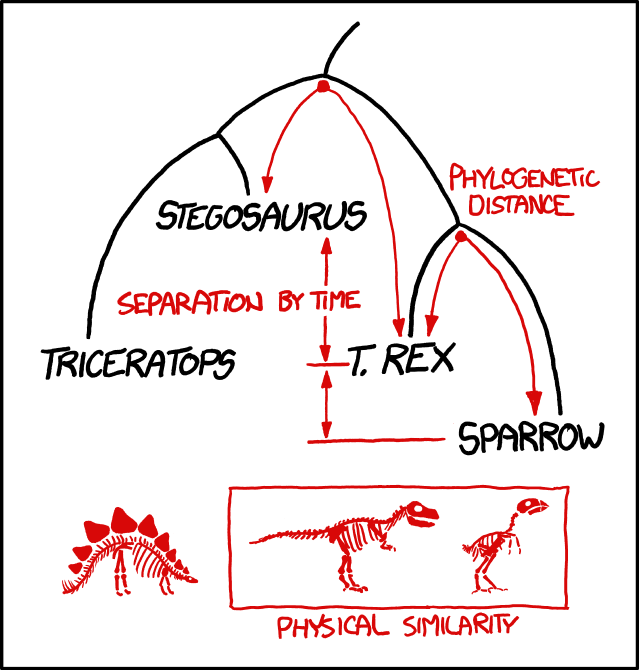 PHYLOGENETIC
DISTANCE
STEGOSAURUS
SEPARATION BY TIME
TRICERATOPS
T. REX
SPARROW
PHYSICAL SIMILARITY